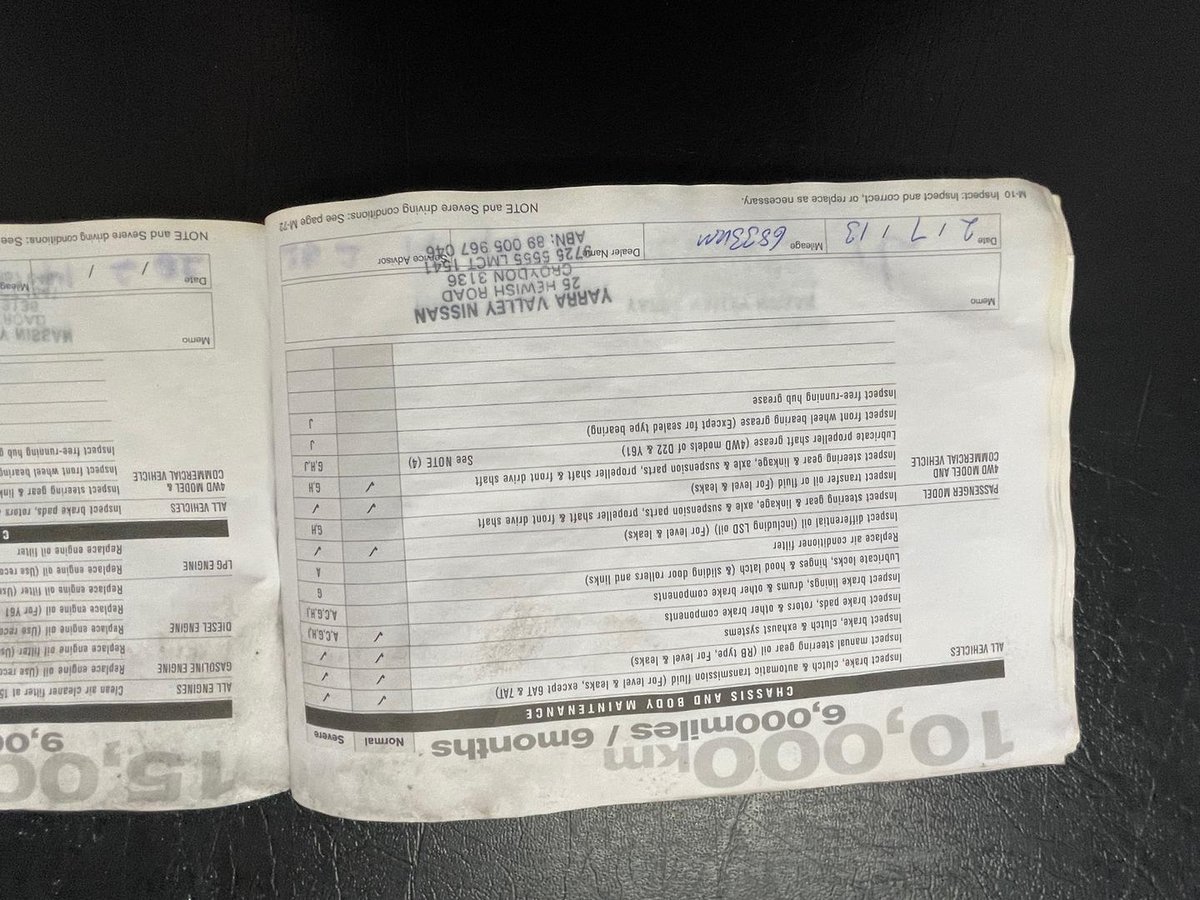 10,000km
6,000miles / 6months
Normal Severe
CHASSIS AND BODY MAINTENANCE
ALL VEHICLES
Inspect brake, clutch & automatic transmission fluid (For level & leaks, except 6AT & 7AT) ✓ ✓
Inspect manual steering gear oil (RB) type, For level & leaks) ✓ ✓
Inspect brake, clutch & exhaust systems ✓ ✓
Inspect brake pads, rotors & other brake components ✓ A,C,G,H,I
Inspect brake linings, drums & other brake components A,C,G,H,I
Lubricate locks, hinges & hood latch (& sliding door rollers and links) G
Replace air conditioner filter A
Inspect differential oil (including LSD oil) (For level & leaks) ✓ ✓
PASSENGER MODEL
Inspect steering gear & linkage, axle & suspension parts, propeller shaft & front drive shaft G,H
4WD MODEL AND
COMMERCIAL VEHICLE
Inspect transfer oil or fluid (For level & leaks) ✓ ✓
Inspect steering gear & linkage, axle & suspension parts, propeller shaft & front drive shaft ✓ G,H
Lubricate propeller shaft grease (4WD models of D22 & Y61) See NOTE (4) G,H,J
Inspect front wheel bearing grease (Except for sealed type bearing) J
Inspect free-running hub grease J
Memo
YARRA VALLEY NISSAN
25 HEWISH ROAD
CROYDON 3136
9725 5555 LMCT 1541
ABN: 89 005 967 046
Date 2 / 7 / 13 Mileage Dealer Name Service Advisor
M-10 Inspect: Inspect and correct, or replace as necessary.
NOTE and Severe driving conditions: See page M-72
15,00
9,00
ALL ENGINES Clean air cleaner filter at 15
GASOLINE ENGINE Replace engine oil (Use reco
Replace engine oil filter (Us
DIESEL ENGINE Replace engine oil (Use reco
Replace engine oil (For Y61
Replace engine oil filter (Us
LPG ENGINE Replace engine oil (Use reco
Replace engine oil filter
C
ALL VEHICLES Inspect brake pads, rotors
4WD MODEL &
COMMERCIAL VEHICLE
Inspect steering gear & link
Inspect front wheel bearing
Inspect free-running hub g
Memo
Date / / Mileage
NOTE and Severe driving conditions: See